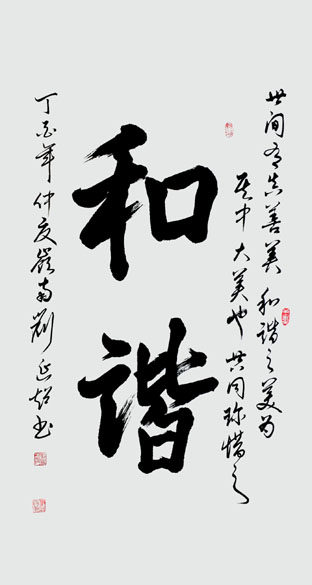 世间有真善美和谐之美为
其中大美也共同珍惜之
和谐
丁酉年仲夏岭南刘延超书